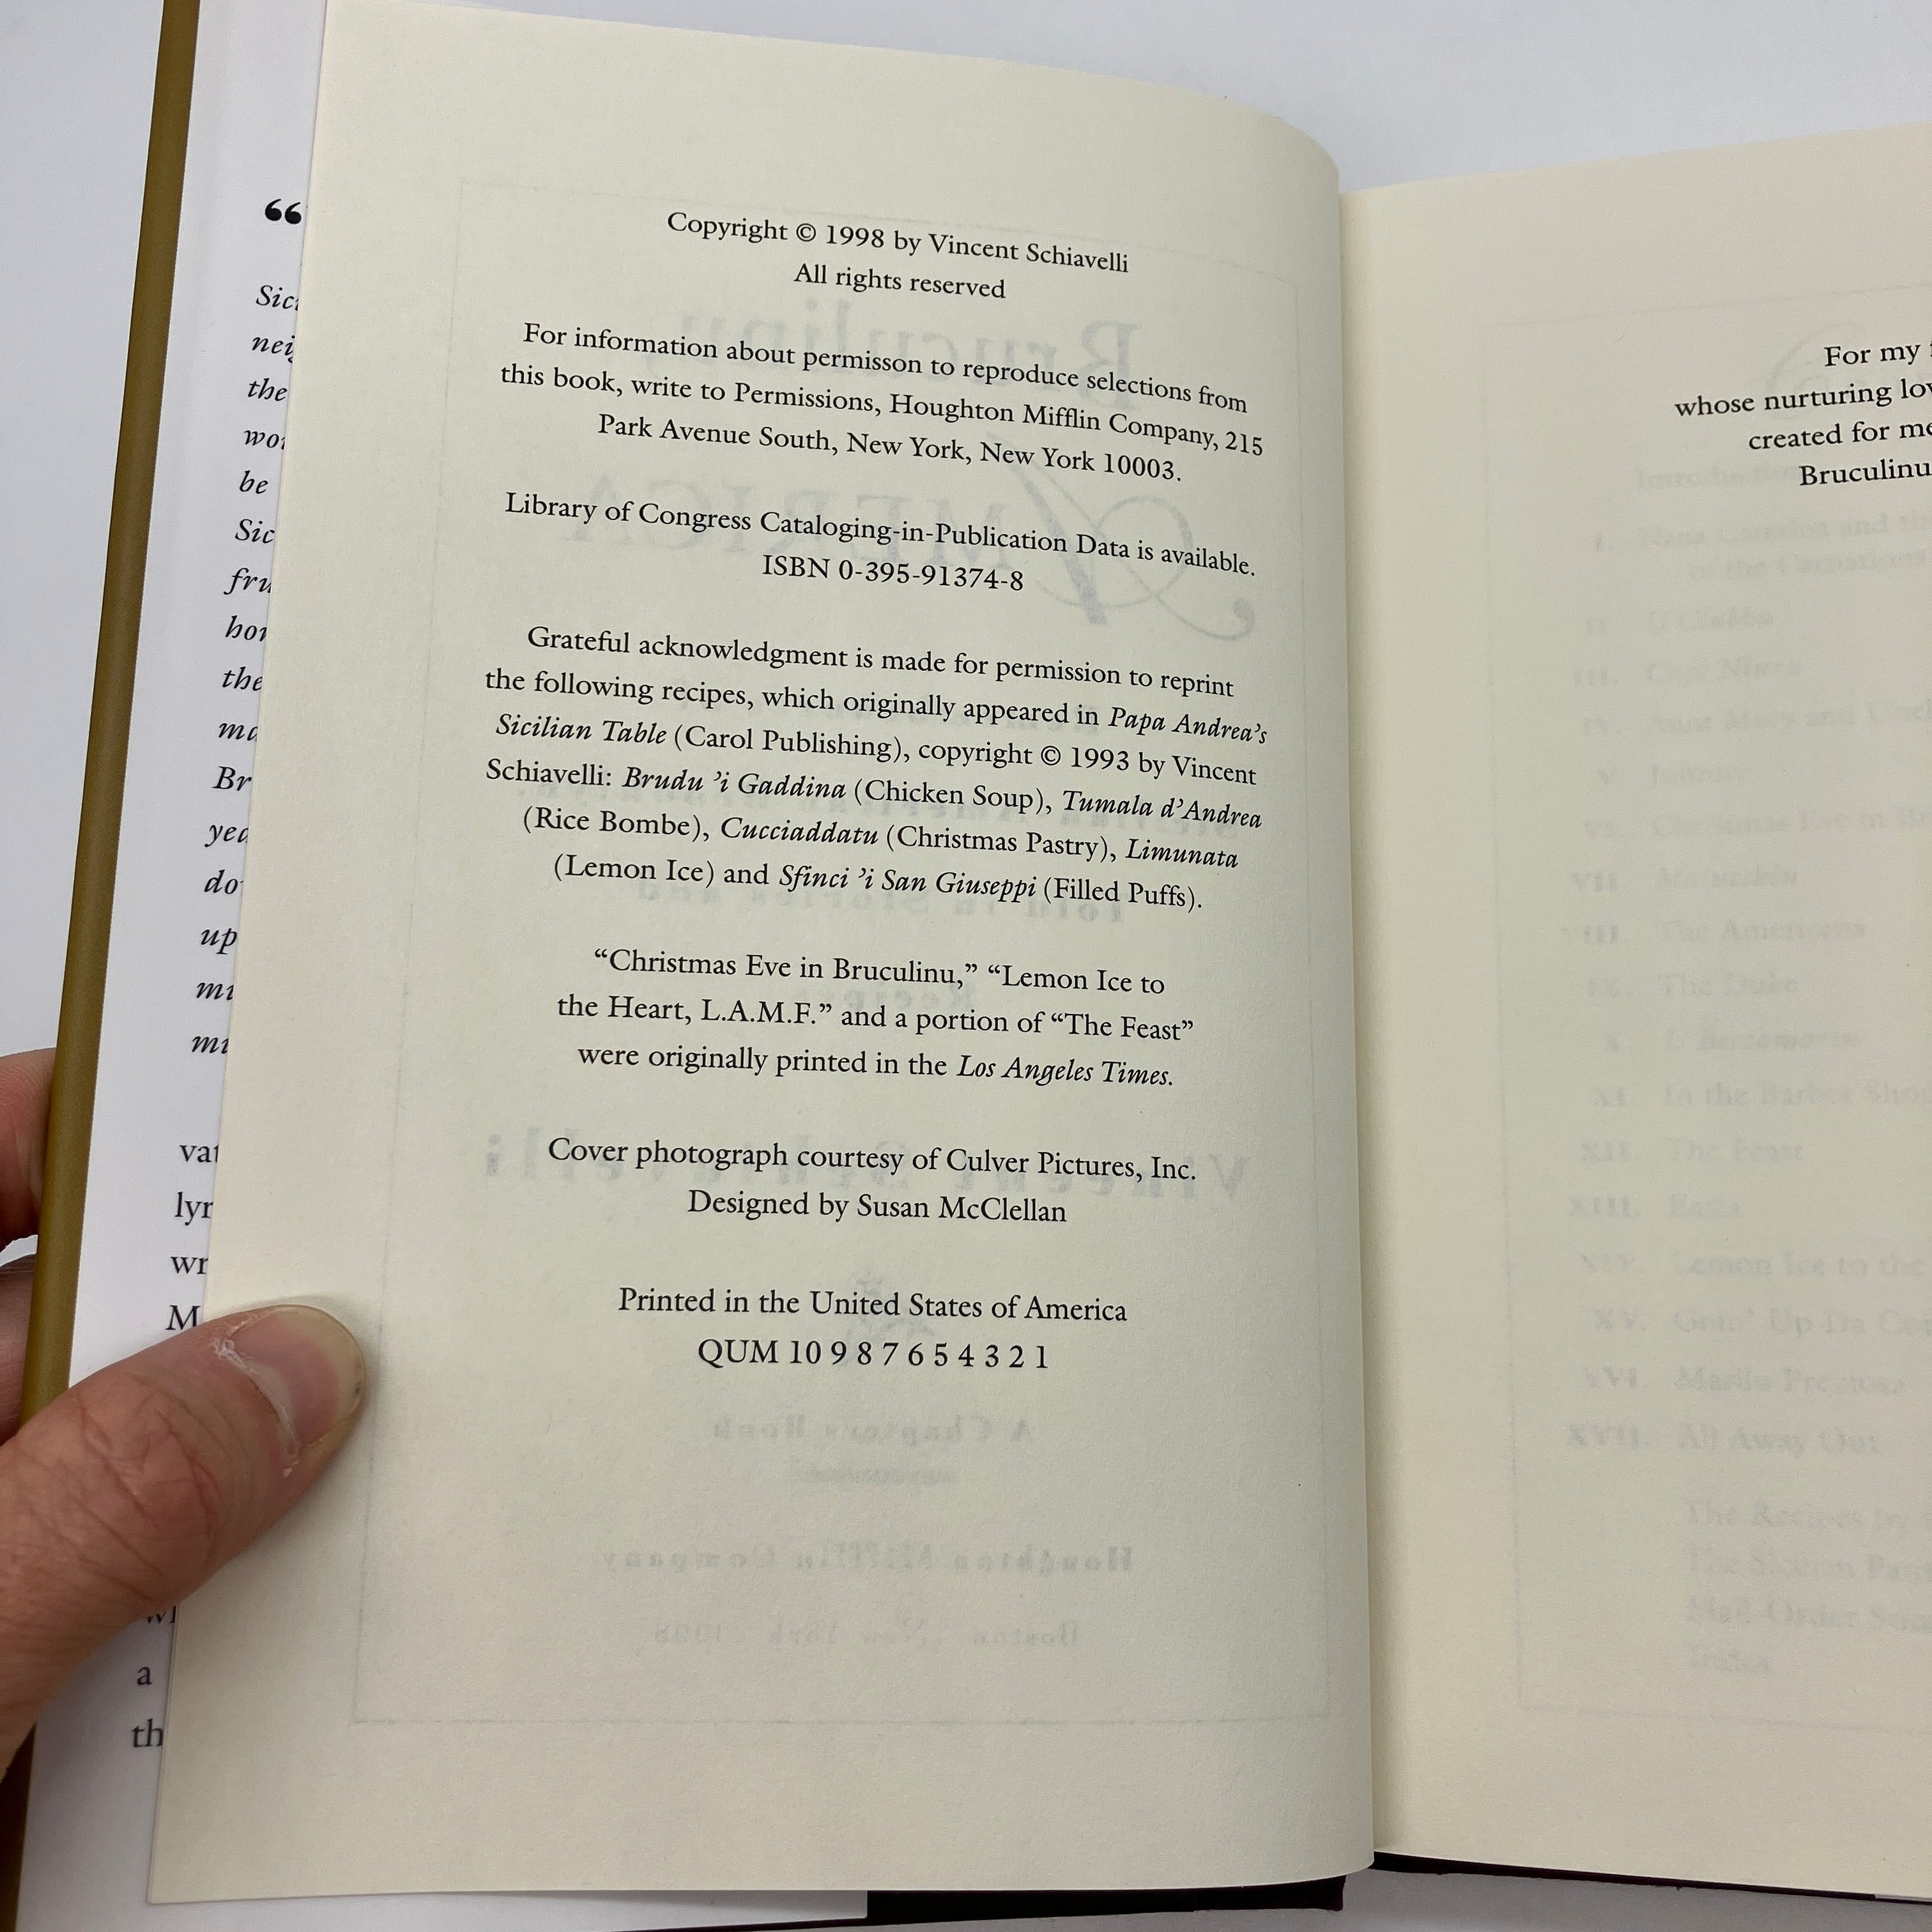 “
Sic
nei
the
wor
be
Sic
fru
hor
the
ma
Br
yea
do
up
mi
mi
vat
lyr
wr
M
a
th
Copyright © 1998 by Vincent Schiavelli
All rights reserved
For information about permisson to reproduce selections from
this book, write to Permissions, Houghton Mifflin Company, 215
Park Avenue South, New York, New York 10003.
Library of Congress Cataloging-in-Publication Data is available.
ISBN 0-395-91374-8
Grateful acknowledgment is made for permission to reprint
the following recipes, which originally appeared in Papa Andrea’s
Sicilian Table (Carol Publishing), copyright © 1993 by Vincent
Schiavelli: Brudu ’i Gaddina (Chicken Soup), Tumala d’Andrea
(Rice Bombe), Cucciaddatu (Christmas Pastry), Limunata
(Lemon Ice) and Sfinci ’i San Giuseppi (Filled Puffs).
“Christmas Eve in Bruculinu,” “Lemon Ice to
the Heart, L.A.M.F.” and a portion of “The Feast”
were originally printed in the Los Angeles Times.
Cover photograph courtesy of Culver Pictures, Inc.
Designed by Susan McClellan
Printed in the United States of America
QUM 10 9 8 7 6 5 4 3 2 1
For my
whose nurturing lov
created for me
Bruculinu